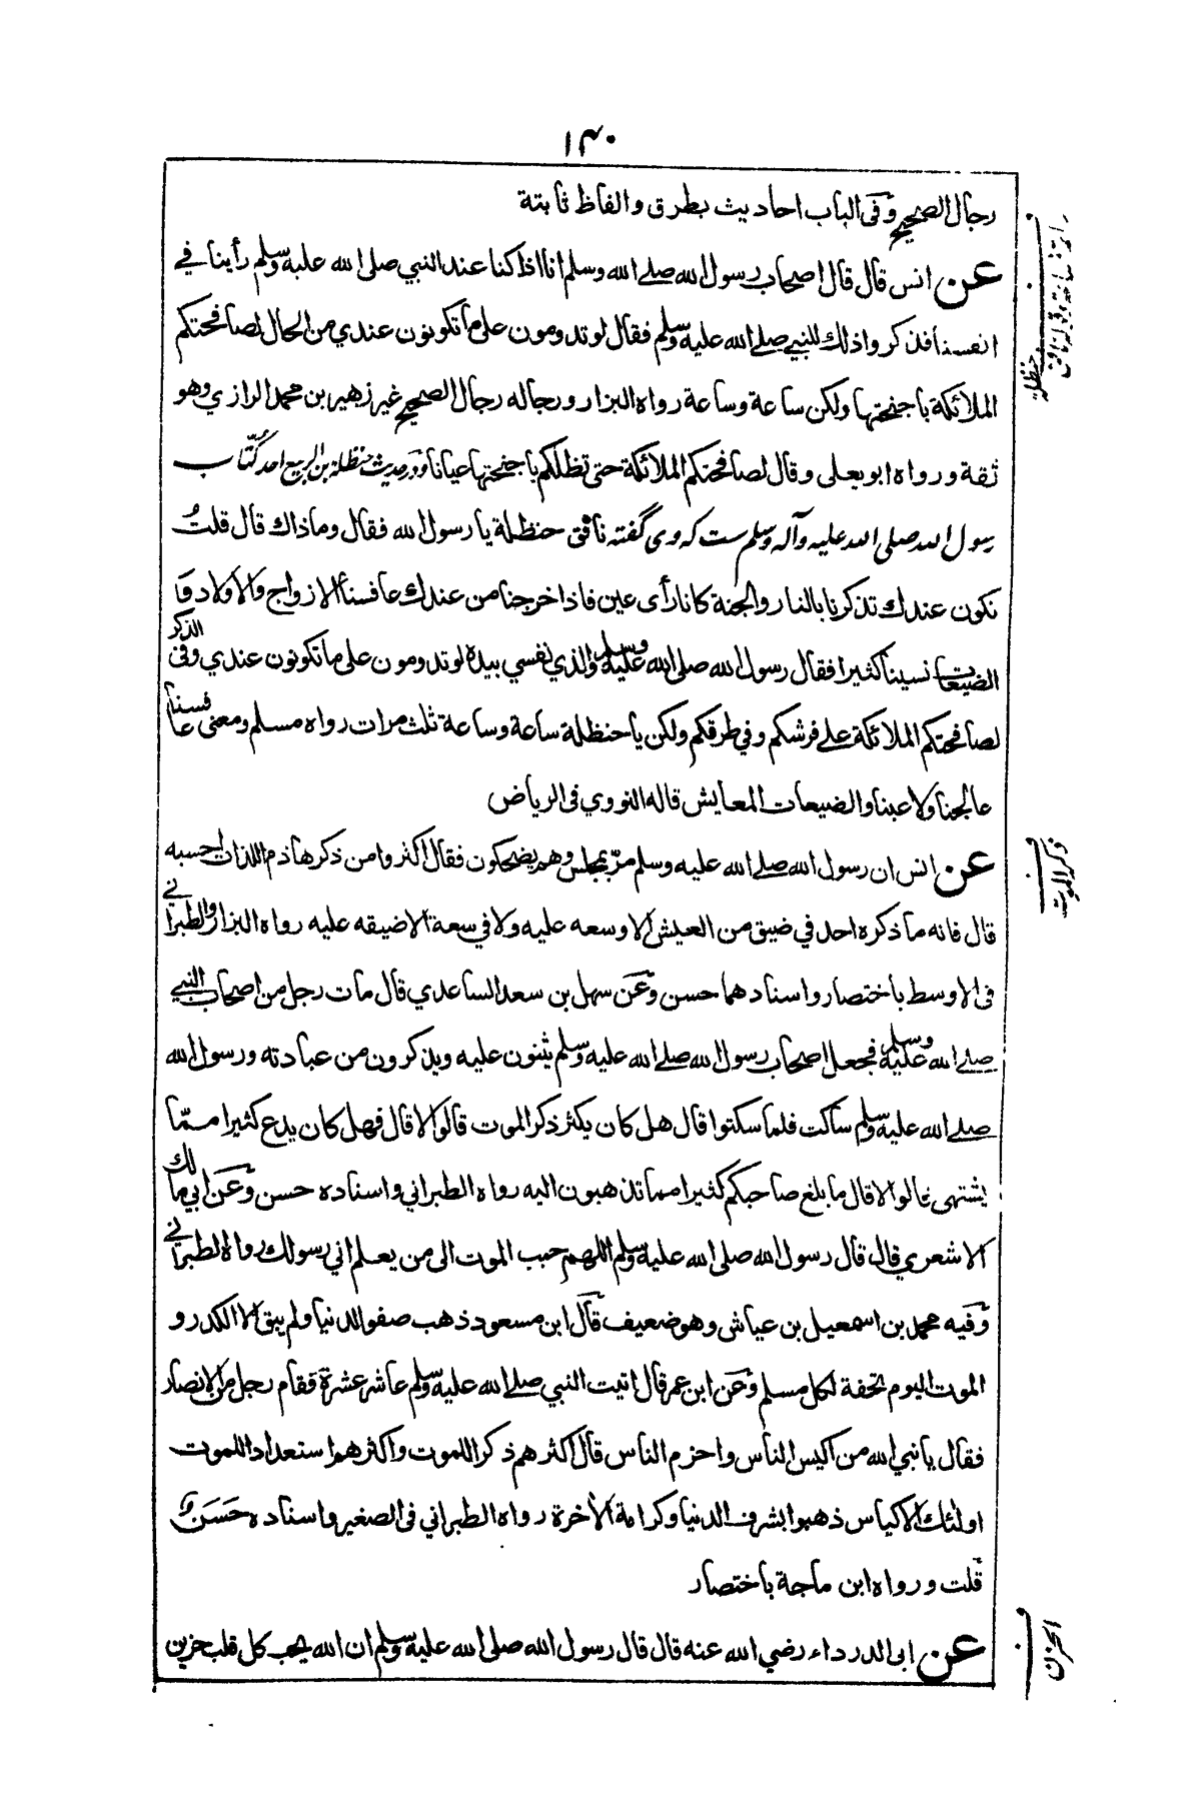 ۱۳۰
رجال الصحيح وفى الباب احاديث بطرق والفاظ ثابتة
عن انس قال قال اصحاب رسول الله صلے الله وسلم انا اذا كنا عند النبي صلى الله عليه وسلم رأينا في
انفسنا فذكروا ذلك للنبي صلے الله عليه وسلم فقال لو تدومون على ما تكونون عندي من الحال لصافحتكم
الملائكة باجنحتها ولكن ساعة وساعة رواه البزار ورجاله رجال الصحيح غير زهير بن محمد الرازي وهو
ثقة ورواه ابو يعلى وقال لصافحتكم الملائكة حتى تظلكم باجنحتها عيانا ودر حديث حنظلة بن الربيع احد كُتّاب
رسول الله صلى الله عليه وآله وسلم ست كه وى گفته نافق حنظلة يا رسول الله فقال وما ذاك قال قلتُ
نكون عندك تذكرنا بالنار والجنة كانا رأى عين فاذا خرجنا من عندك عافسنا الازواج والاولاد و
الضيعات نسينا كثيرا فقال رسول الله صلى الله عليه وسلم والذي نفسي بيده لو تدومون على ما تكونون عندي وفى الذكر
لصافحتكم الملائكة على فرشكم وفي طرقكم ولكن يا حنظلة ساعة وساعة ثلث مرات رواه مسلم ومعنى عافسنا
عالجنا ولاعبنا والضيعات المعايش قاله النووي فى الرياض
عن انس ان رسول الله صلے الله عليه وسلم مرّ بمجلس وهم يضحكون فقال اكثروا من ذكر هاذم اللذات احسبه
قال فانه ما ذكره احد في ضيق من العيش الا وسعه عليه ولا في سعة الا ضيقه عليه رواه البزار والطبراني
فى الاوسط باختصار واسنادهما حسن وعن سهل بن سعد الساعدي قال مات رجل من اصحاب النبي
صلے الله عليه وسلم فجعل اصحاب رسول الله صلے الله عليه وسلم يثنون عليه ويذكرون من عبادته ورسول الله
صلے الله عليه وسلم ساكت فلما سكتوا قال هل كان يكثر ذكر الموت قالوا لا قال فهل كان يدع كثيرا ممّا
يشتهى قالوا لا قال ما بلغ صاحبكم كثيرا مما تذهبون اليه رواه الطبراني واسناده حسن وعن ابي مالك
الاشعري قال قال رسول الله صلى الله عليه وسلم اللهم حبب الموت الى من يعلم اني رسولك رواه الطبراني
وفيه محمد بن اسمعيل بن عياش وهو ضعيف قال ابن مسعود ذهب صفو الدنيا ولم يبق الا الكدر و
الموت اليوم تحفة لكل مسلم وعن ابن عمر قال اتيت النبي صلے الله عليه وسلم عاشر عشرة فقام رجل من الانصار
فقال يا نبي الله من اكيس الناس واحزم الناس قال اكثرهم ذكرا للموت واكثرهم استعدادا للموت
اولئك الاكياس ذهبوا بشرف الدنيا وكرامة الأخرة رواه الطبراني فى الصغير واسناده حَسَنٌ
قلت ورواه ابن ماجة باختصار
عن ابى الدرداء رضي الله عنه قال قال رسول الله صلى الله عليه وسلم ان الله يحب كل قلب حزين
حنظلة
ذكر الموت
الحزن